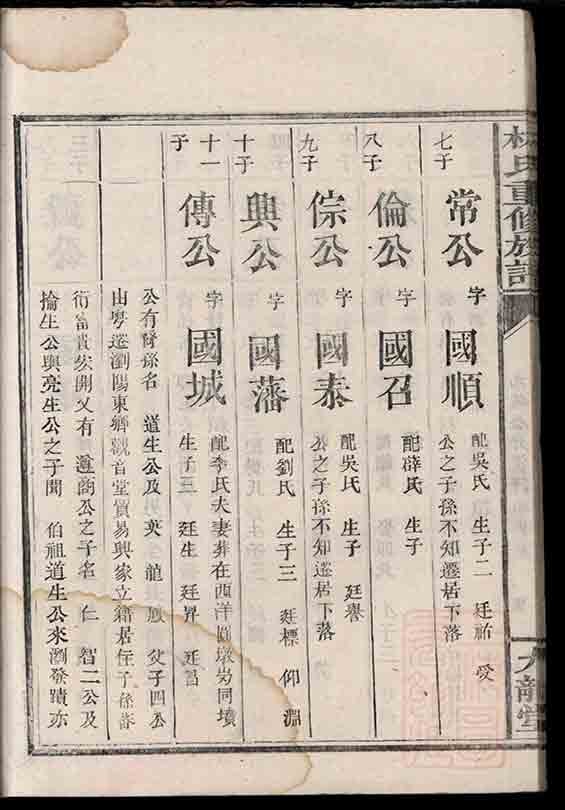 林氏重修族譜
九龍堂
七子 常公 字 國順 配吳氏 生子二 廷祐 受
公之子孫不知遷居下落
八子 倫公 字 國召 配薛氏 生子
九子 倧公 字 國泰 配吳氏 生子 廷譽
公之子孫不知遷居下落
十子 興公 字 國藩 配劉氏 生子三 廷標 仰 淵
十一子 傳公 字 國城 配李氏夫妻葬在西洋圓墩岃同墳
生子三 廷生 廷昇 廷昌
公有裔孫名 道生公及男 英 龍 鳳 父子四公
由粵遷瀏陽東鄉觀音堂貿易興家立籍居住子孫蕃
衍富貴發開又有 公之子名 仁 智二公及
掄生公與亮生公之子聞 伯祖道生公來瀏發蹟亦